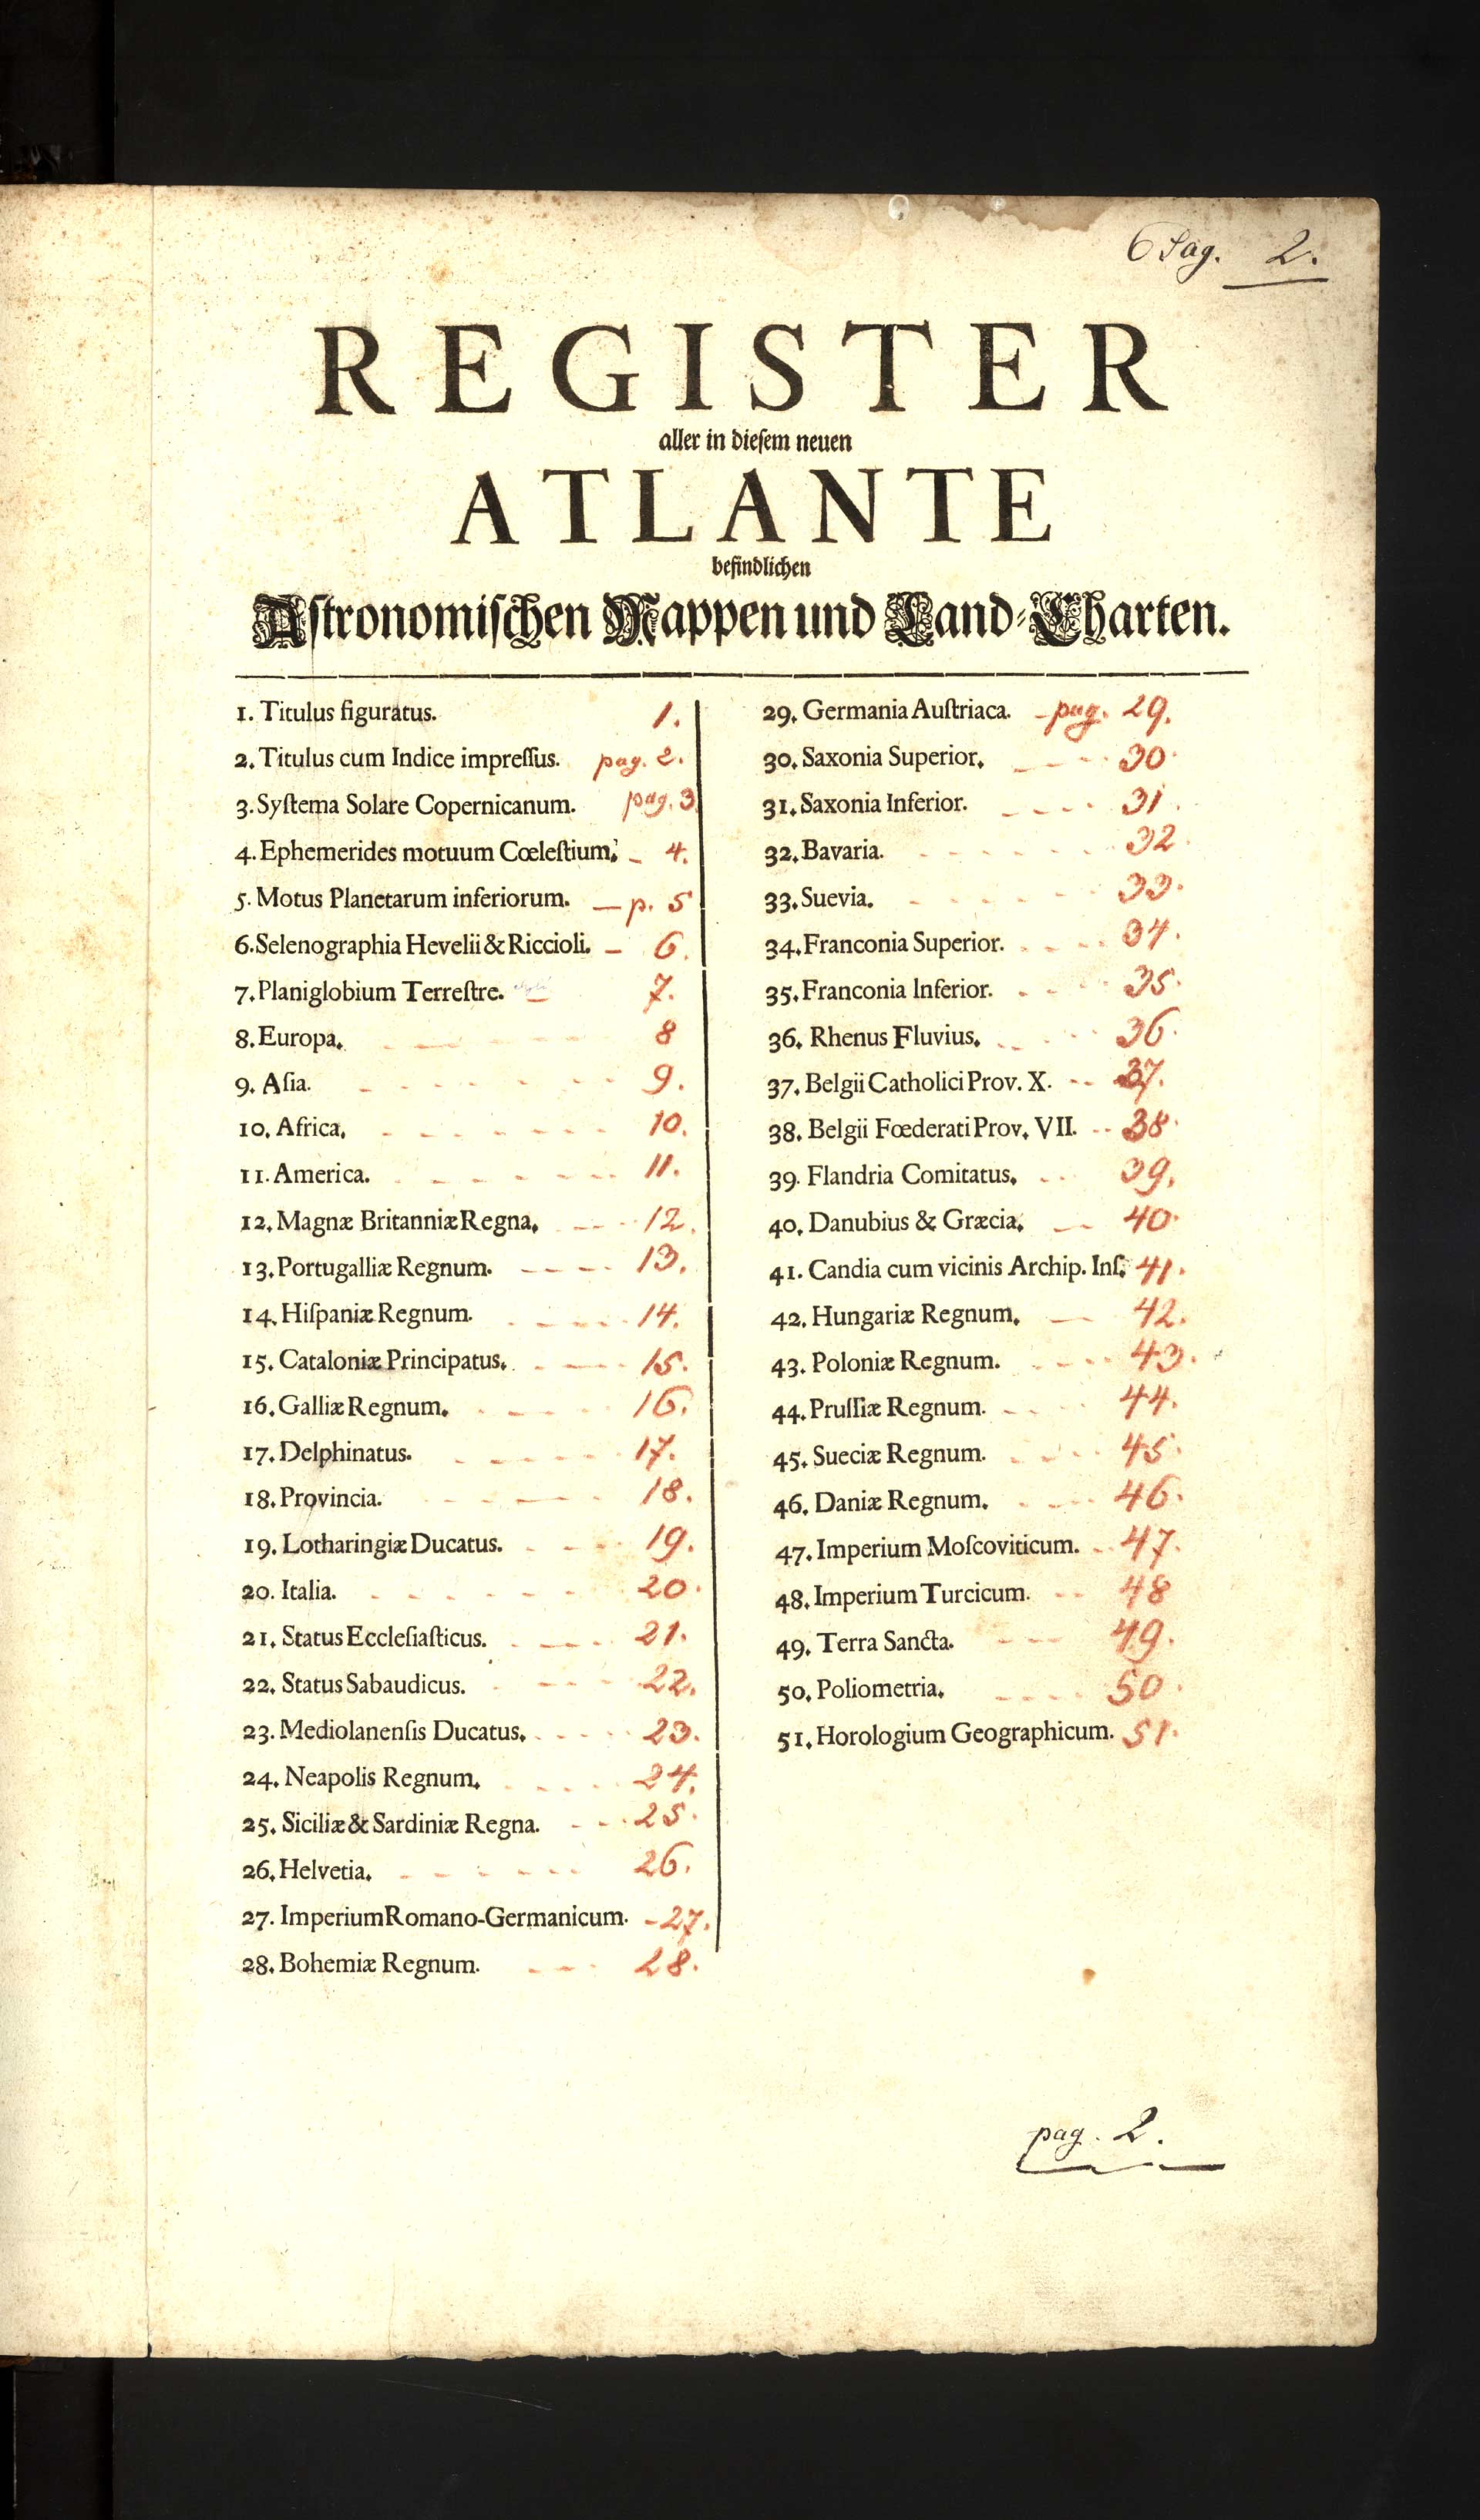 6 Pag. 2.
REGISTER
aller in dieſem neuen
ATLANTE
befindlichen
Aſtronomiſchen Mappen und Land-Charten.
1. Titulus figuratus. 1.
2. Titulus cum Indice impreſſus. pag. 2.
3. Syſtema Solare Copernicanum. pag. 3
4. Ephemerides motuum Cœleſtium. 4.
5. Motus Planetarum inferiorum. — p. 5
6. Selenographia Hevelii & Riccioli. — 6.
7. Planiglobium Terreſtre. 7.
8. Europa. 8
9. Aſia. 9.
10. Africa. 10.
11. America. 11.
12. Magnæ Britanniæ Regna. 12.
13. Portugalliæ Regnum. 13.
14. Hiſpaniæ Regnum. 14.
15. Cataloniæ Principatus. 15.
16. Galliæ Regnum. 16.
17. Delphinatus. 17.
18. Provincia. 18.
19. Lotharingiæ Ducatus. 19.
20. Italia. 20.
21. Status Eccleſiaſticus. 21.
22. Status Sabaudicus. 22.
23. Mediolanenſis Ducatus. 23.
24. Neapolis Regnum. 24.
25. Siciliæ & Sardiniæ Regna. 25.
26. Helvetia. 26.
27. Imperium Romano-Germanicum. 27.
28. Bohemiæ Regnum. 28.
29. Germania Auſtriaca. pag. 29.
30. Saxonia Superior. 30.
31. Saxonia Inferior. 31.
32. Bavaria. 32.
33. Suevia. 33.
34. Franconia Superior. 34.
35. Franconia Inferior. 35.
36. Rhenus Fluvius. 36.
37. Belgii Catholici Prov. X. 37.
38. Belgii Fœderati Prov. VII. 38.
39. Flandria Comitatus. 39.
40. Danubius & Græcia. 40.
41. Candia cum vicinis Archip. Inſ. 41.
42. Hungariæ Regnum. 42.
43. Poloniæ Regnum. 43.
44. Pruſſiæ Regnum. 44.
45. Sueciæ Regnum. 45.
46. Daniæ Regnum. 46.
47. Imperium Moſcoviticum. 47.
48. Imperium Turcicum. 48
49. Terra Sancta. 49.
50. Poliometria. 50.
51. Horologium Geographicum. 51.
pag. 2.